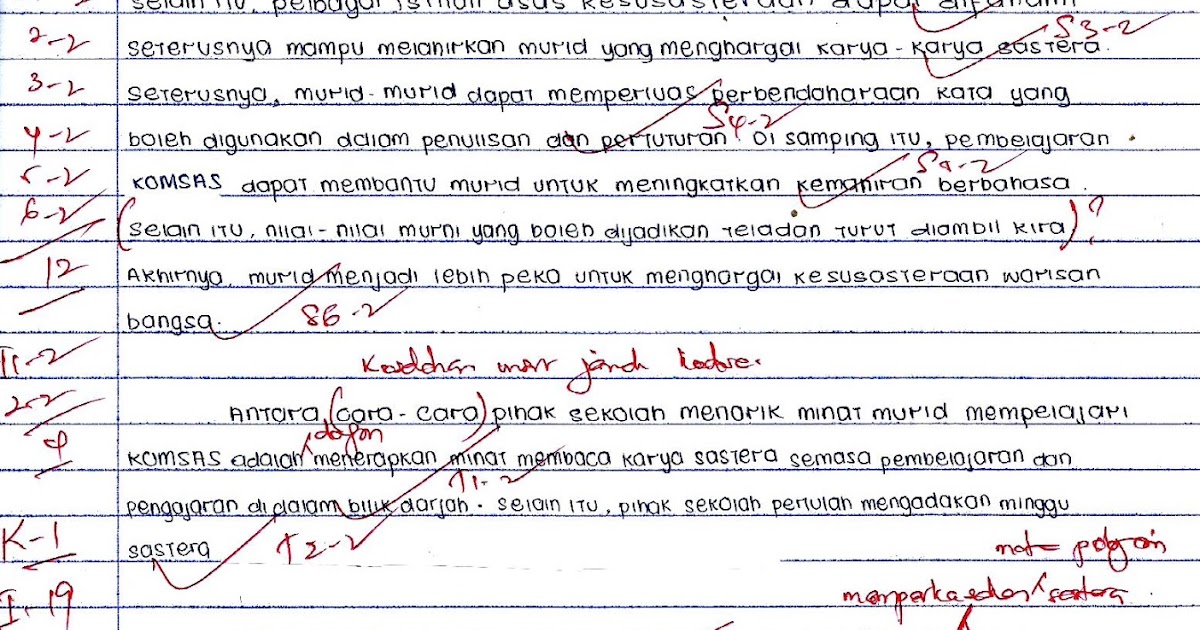 selain itu, pelbagai istilah asas kesusasteraan dapat difahami
2-2 seterusnya mampu melahirkan murid yang menghargai karya-karya sastera. S3-2
3-2 seterusnya, murid-murid dapat memperluas perbendaharaan kata yang
4-2 boleh digunakan dalam penulisan dan pertuturan. Di samping itu, pembelajaran S4-2
5-2 KOMSAS dapat membantu murid untuk meningkatkan kemahiran berbahasa. S4-2
6-2 (selain itu, nilai-nilai murni yang boleh dijadikan teladan turut diambil kira)?
12 Akhirnya, murid menjadi lebih peka untuk menghargai kesusasteraan warisan
bangsa. S6-2
T1-2
2-2 Antara (cara-cara) pihak sekolah menarik minat murid mempelajari
4 KOMSAS adalah dgn menerapkan minat membaca karya sastera semasa pembelajaran dan
T1-2
pengajaran di dalam bilik darjah. selain itu, pihak sekolah perlulah mengadakan minggu
K-1 sastera T2-2
I-19 sastera